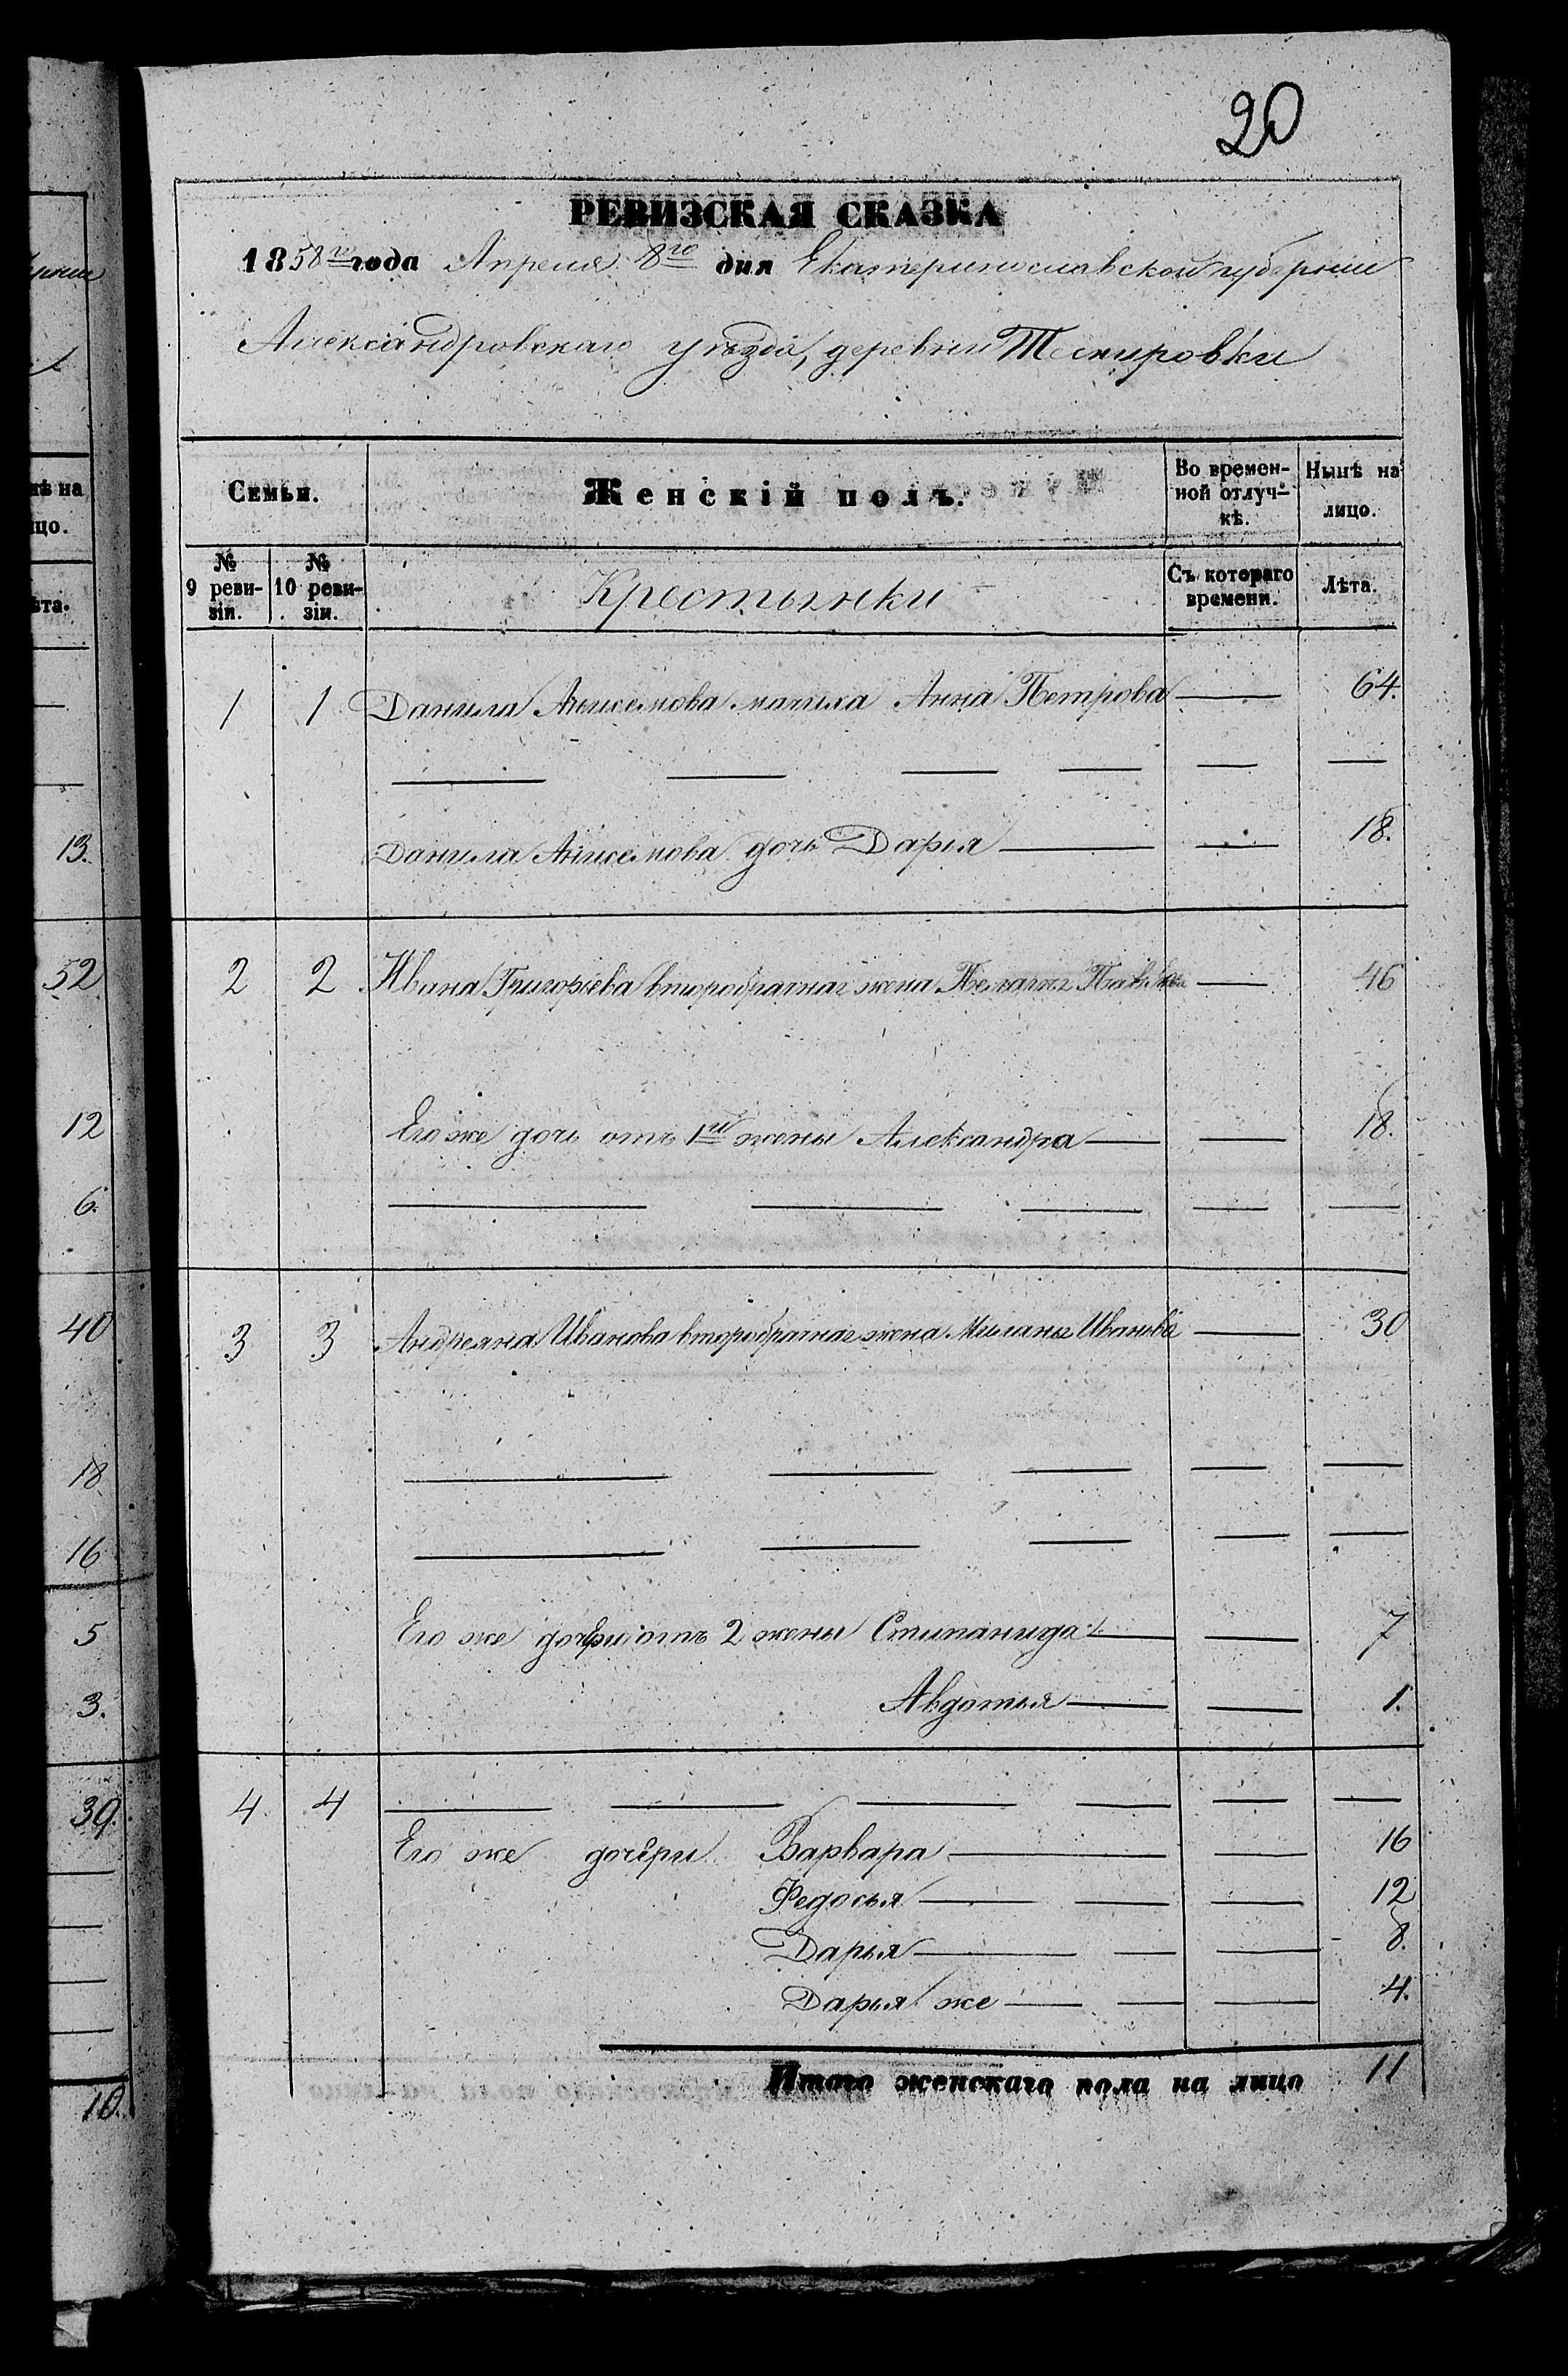 20
РЕВИЗСКАЯ СКАЗКА
1858го года Апреля 8го дня Екатеринославской губерніи
Александровскаго уѣзда, деревни Темировки
Семьи.
Женскій полъ.
Во времен-
ной отлуч-
кѣ.
Нынѣ на
лицо.
№
9 реви-
зіи.
№
10 реви-
зіи.
Крестьянки
Съ котораго
времени.
Лѣта.
1 1 Данила Анисемова мачиха Анна Петрова — 64.
Данила Анисемова дочь Дарья — 18.
2 2 Ивана Григорьева второбрачная жена Пелагея Павлова — 46
Его же дочь отъ 1й жены Александра — 18.
3 3 Андреяна Иванова второбрачная жена Миланья Иванова — 30
Его же дочери отъ 2 жены Стипанида — 7
Авдотья — 1.
4 4
Его же дочери Варвара — 16
Федосья — 12
Дарья — 8.
Дарья же — 4.
Итого женскаго пола на лицо 11
нѣ на
цо.
ѣта.
13.
52
12
6.
40
18
16
5
3.
39.
10.